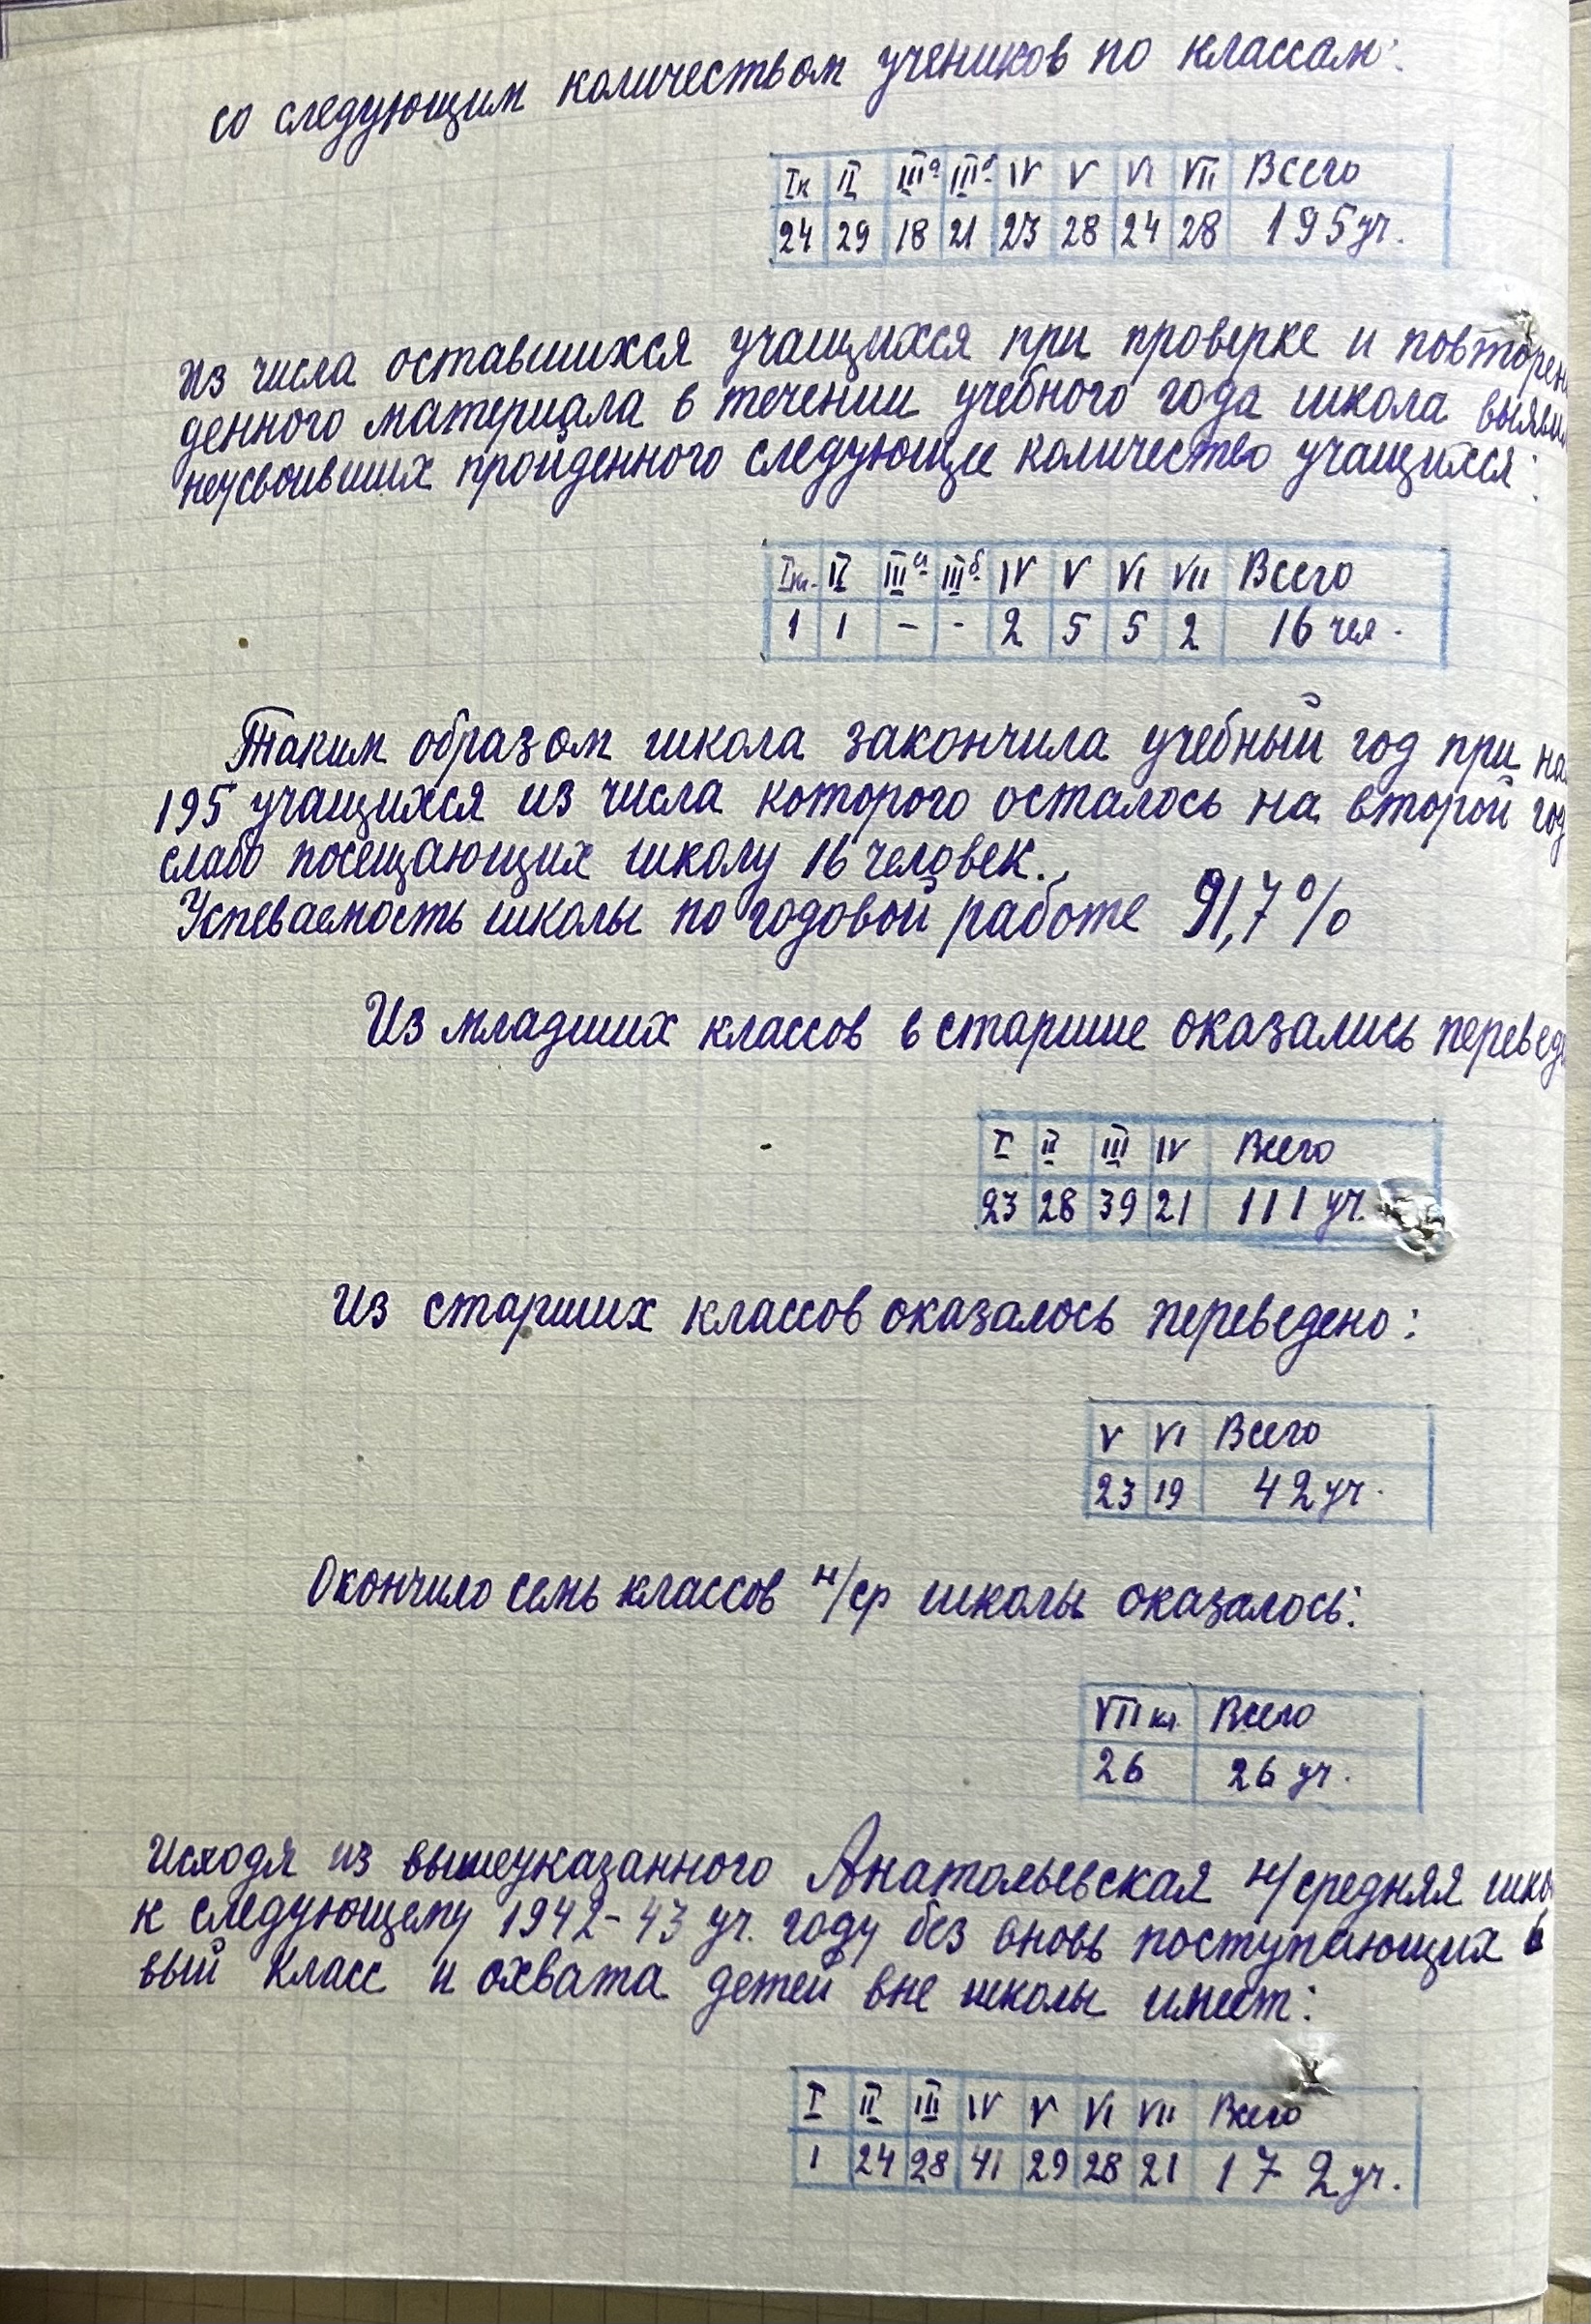 со следующим количеством учеников по классам:
Iк II IIIа IIIб IV V VI VII Всего
24 29 18 21 23 28 24 28 195 уч.
Из числа оставшихся учащихся при проверке и повторен
денного материала в течении учебного года школа выяви
неусвоивших пройденного следующие количество учащихся:
Iкл. II IIIа IIIб IV V VI VII Всего
1 1 - - 2 5 5 2 16 чел.
Таким образом школа закончила учебный год при на
195 учащихся из числа которого осталось на второй год
слабо посещающих школу 16 человек.
Успеваемость школы по годовой работе 91,7%
Из младших классов в старшие оказались переведе
I II III IV Всего
23 28 39 21 111 уч.
Из старших классов оказалось переведено:
V VI Всего
23 19 42 уч.
Окончило семь классов н/ср школы оказалось:
VII кл. Всего
26 26 уч.
Исходя из вышеуказанного Анатольевская н/средняя шко
к следующему 1942-43 уч. году без вновь поступающих в
вый класс и охвата детей вне школы имеет:
I II III IV V VI VII Всего
1 24 28 41 29 28 21 172 уч.